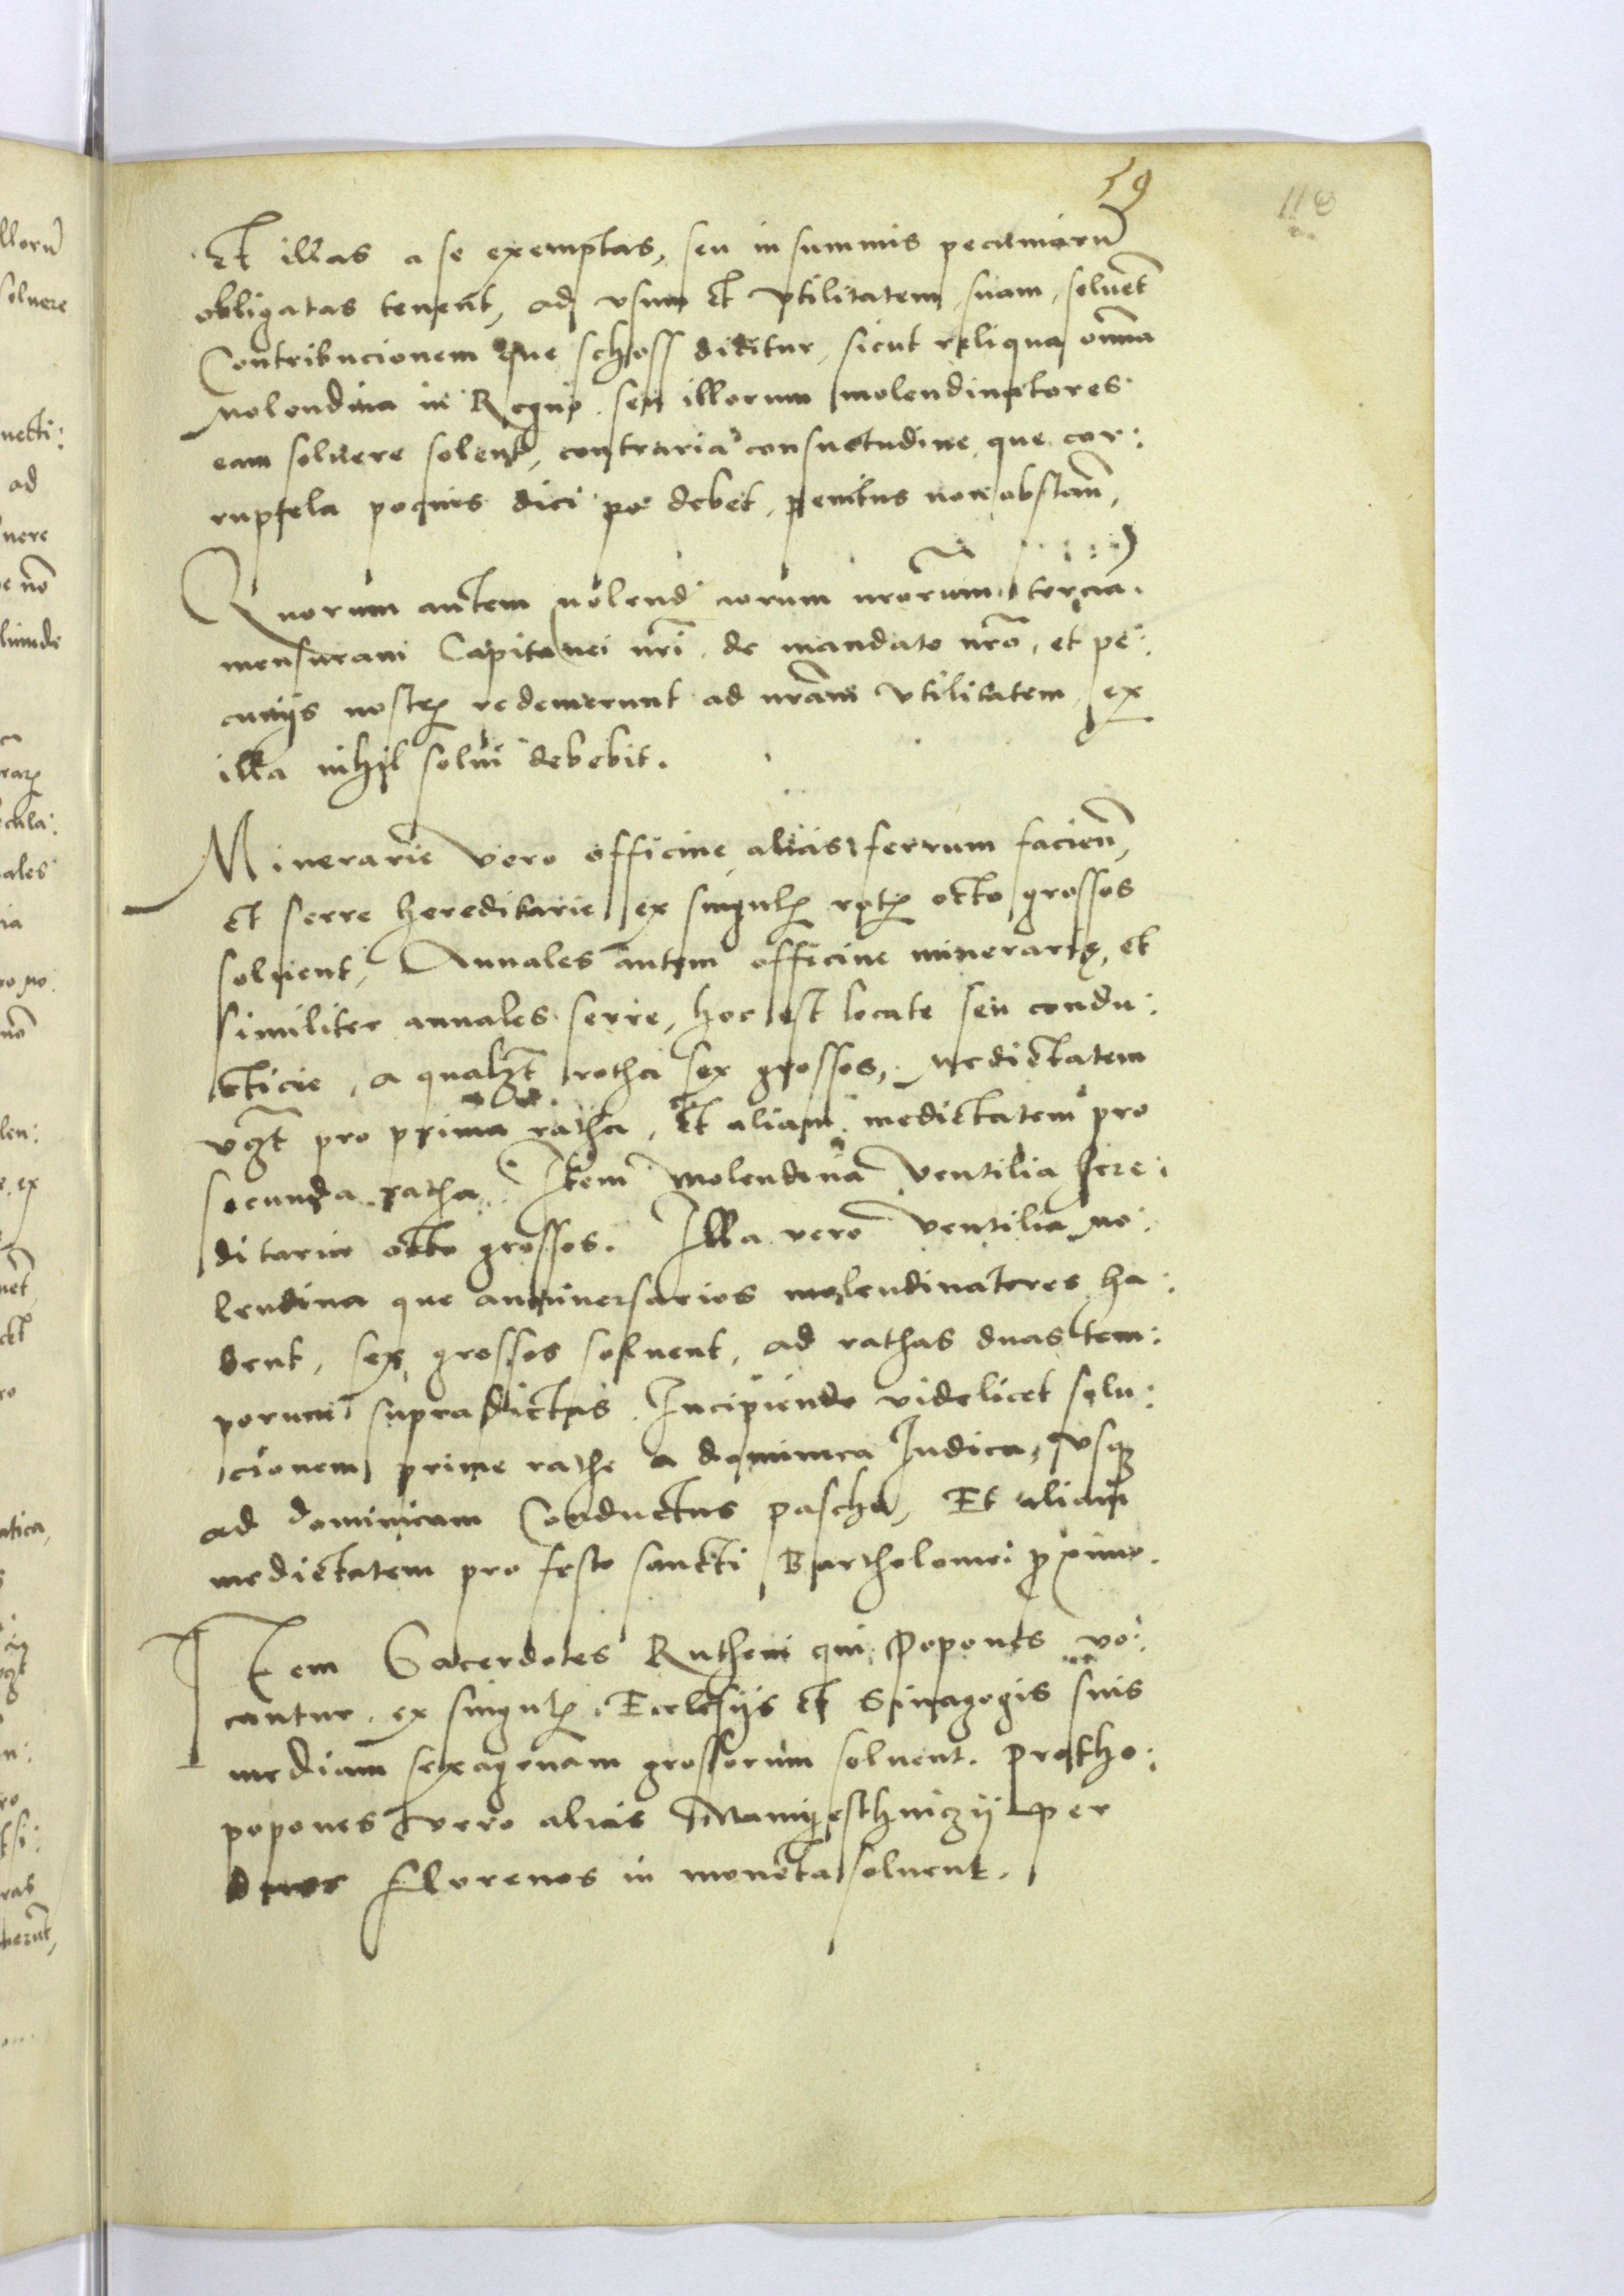 59
118
Et illas a se exemptas, seu in summis pecuniarũ
obligatas tenent, ad vsum et vtilitatem suam, soluẽt
Contribucionem que schoss dicitur, sicut reliqua om̃ia
Molendina in Regno seu illorum molendinatores
eam soluere solent, contraria consuetudine, que cor:
ruptela pocius dici debet, penitus non obstañ,
Quorum autem molend norum nr̃orum terciã
mensuram Capitanei nr̃i de mandato nr̃o, et pe:
cunijs nostrꝭ redemerunt ad nr̃am vtilitatem, ex
illa nihil solui debebit.
Minerarie vero officine alias ferrum facieñ,
et serre hereditarie ex singulꝭ rotꝭ octo grossos
soluent, Annales autem officine minerarie, et
similiter annales serre, hoc est locate seu condu:
cticie, a qualꝫt rotha sex grossos, Medietatem
vꝫt pro prima ratha, Et aliam medietatem pro
secunda ratha. Item Molendina ventilia here:
ditarie octo grossos. Illa vero ventilia Mo:
lendina que anniuersarios molendinatores ha:
bent, sex grossos soluent, ad rathas duas tem:
porum supradictas. Incipiendo videlicet solu:
cionem prime rathe a dominica Iudica, vsqꝫ
ad dominicam Conductus pasche, Et aliam
medietatem pro festo sancti Bartholomei ꝓximo.
Item Sacerdotes Rutheni qui Popones vo:
cantur, ex singulꝭ Ecclesijs et Sinagogis suis
mediam sexagenam grossorum soluent. Protho:
popones vero alias Namyeschniczij per
duos florenos in moneta soluent.